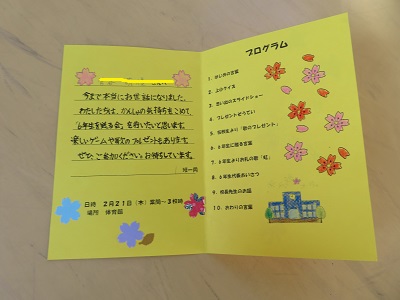 今まで本当にお世話になりました。
わたしたちは、かんしゃの気持ちをこめて、
「6年生を送る会」を行いたいと思います。
楽しいゲームや歌のプレゼントもあります
ぜひ、ご参加ください。お待ちしています。
組一同
日時 2月21日(木)
場所 体育館
プログラム
1. はじめの言葉
2.
3. 思い出のスライドショー
4. プレゼント
5. 「歌のプレゼント」
6. 6年生に贈る言葉
7. 6年生よりお礼の歌「虹」
8. 6年生代表あいさつ
9. 校長先生のお話
10. おわりの言葉